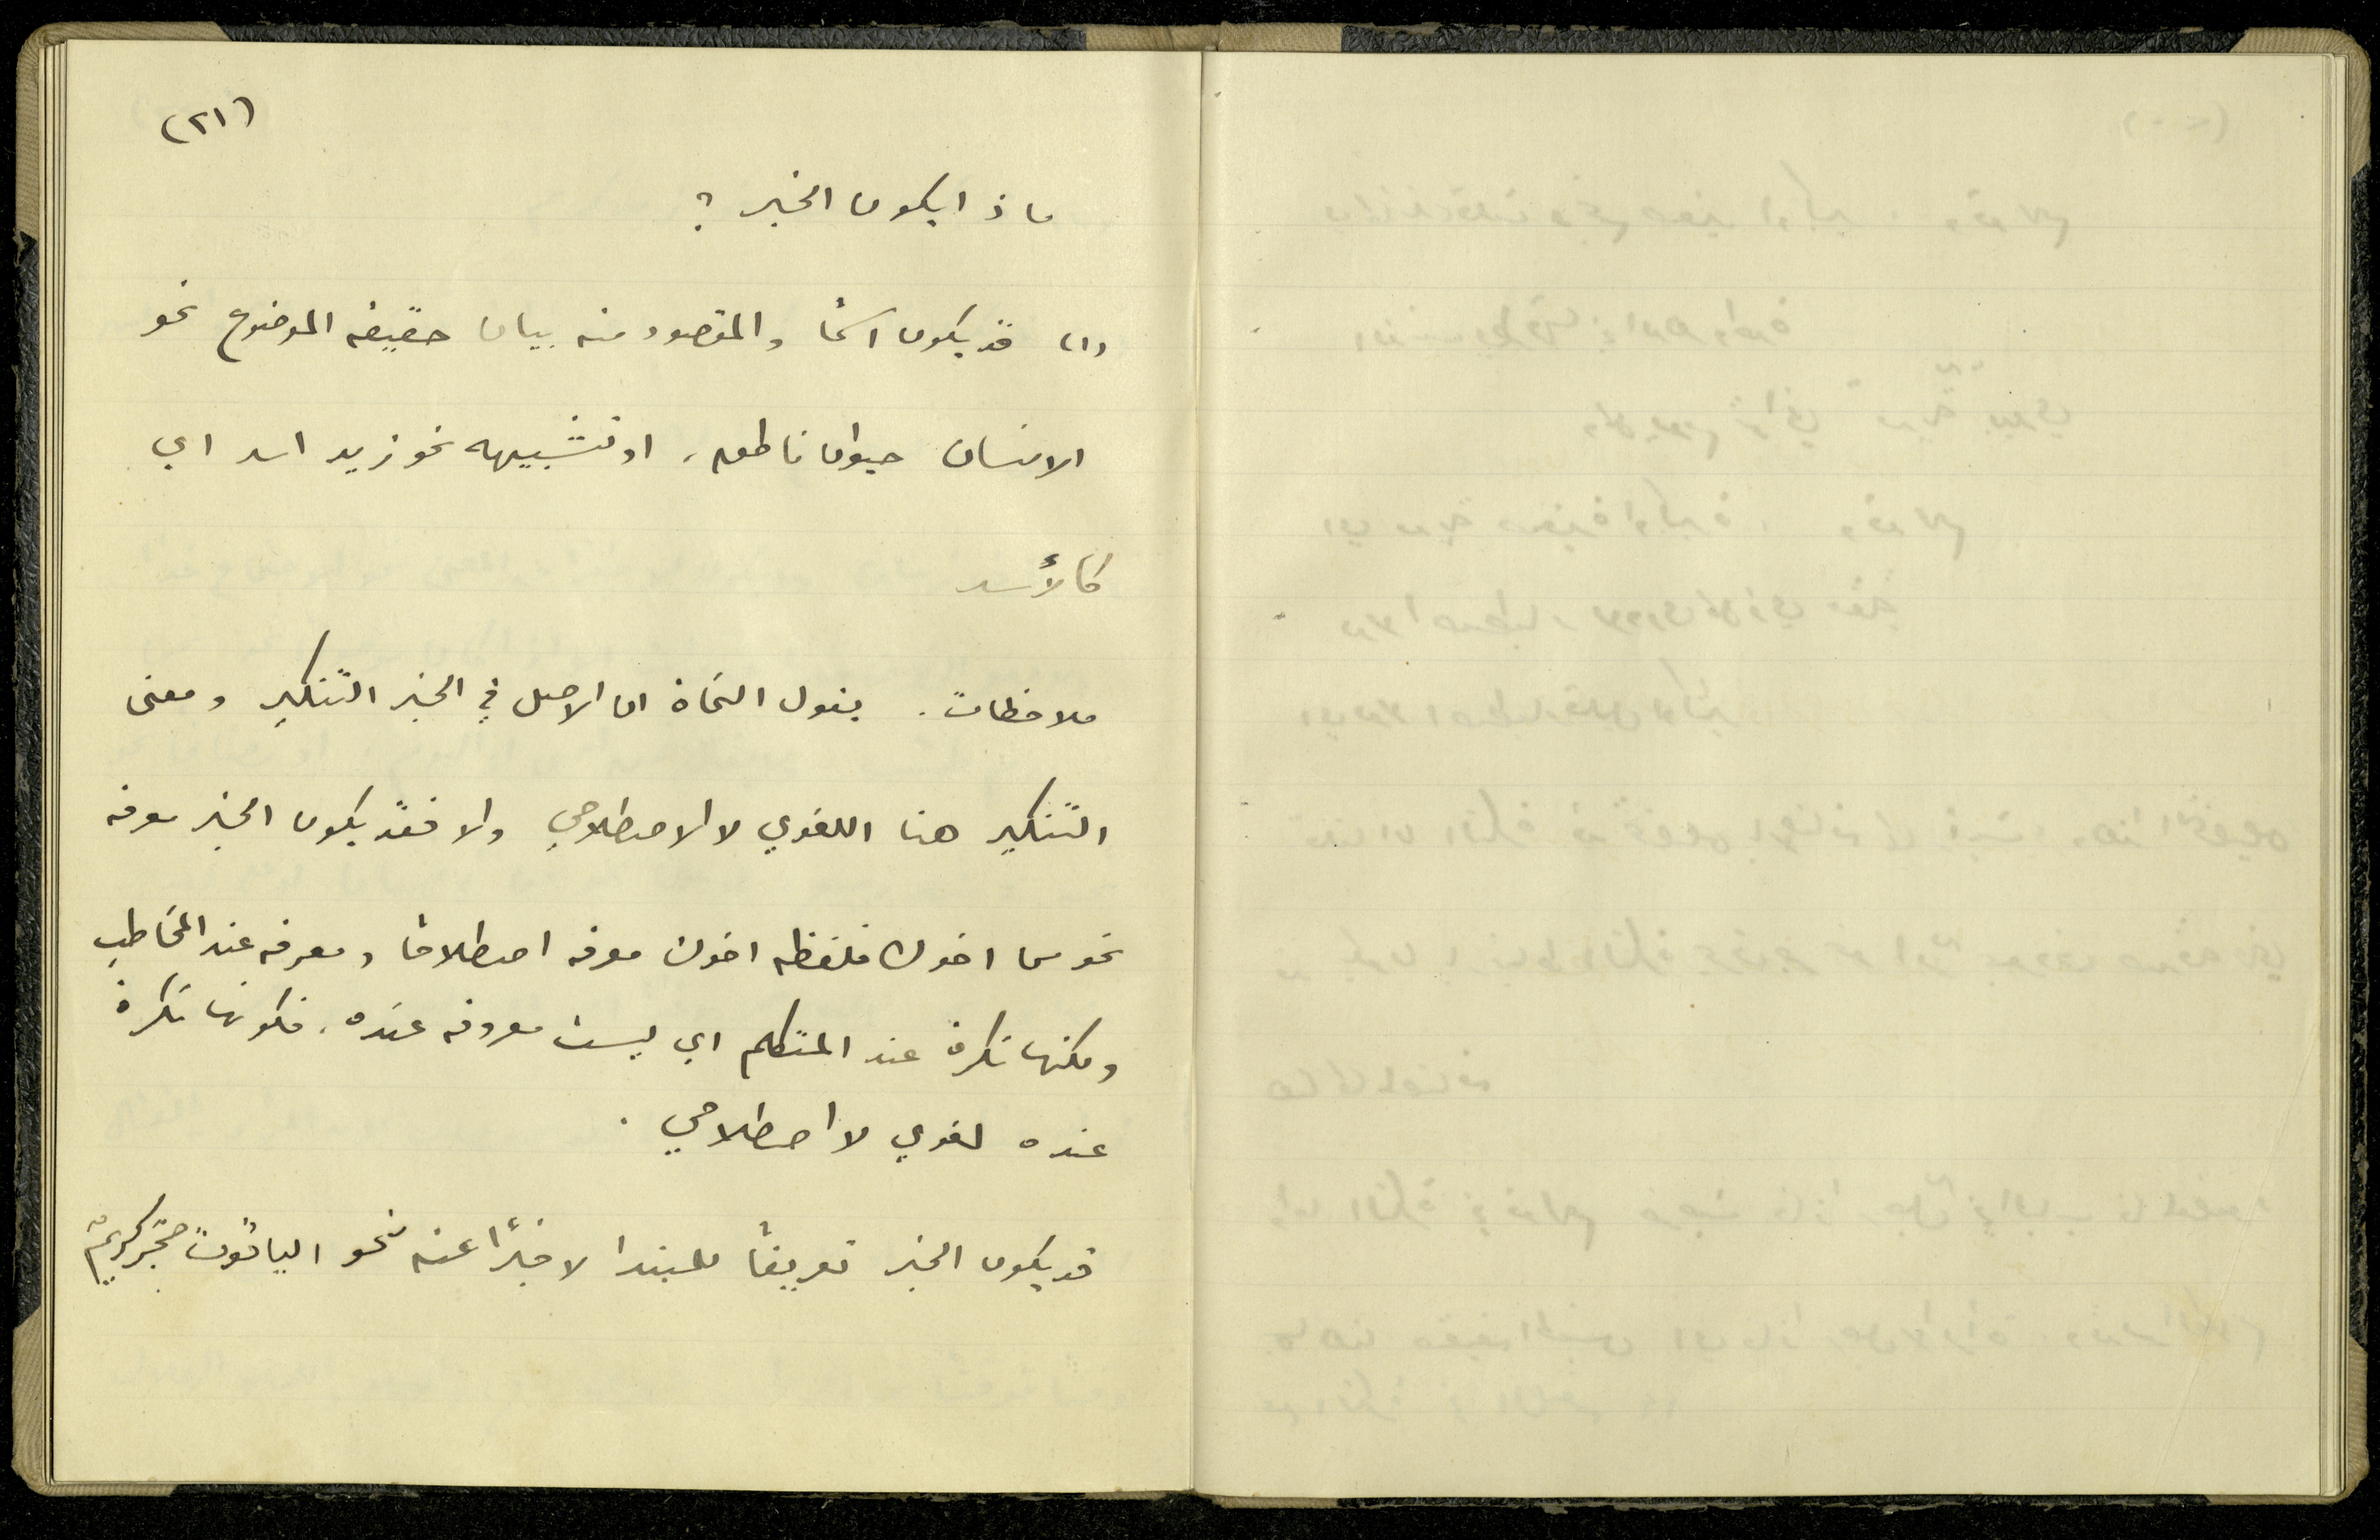 (٢١)
ماذا يكون الخبر ؟
(١) قد يكون اسمًا والمقصود منه بيان حقيقة الموضوع نحو
الانسان حيوان ناطق، او تشبيهه نحو زيد اسد اي
كالأسد
ملاحظات. يقول النحاة ان الاصل في الخبر التنكير ومعنى
التنكير هنا اللغوي لا الاصطلاحي والا فقد يكون الخبر معرفه
نحو اخوك فلفظه اخوك معرفه اصطلاحًا ومعرفه عند المخاطب
ولكنها نكرة عند المتكلم اي ليست معروفه عنده، فكونها نكرة
عنده لغوي لا اصطلاحي.
قد يكون الخبر تعريفًا للمبتدا لا خبرًا عنه نحو الياقوت حجر كريم